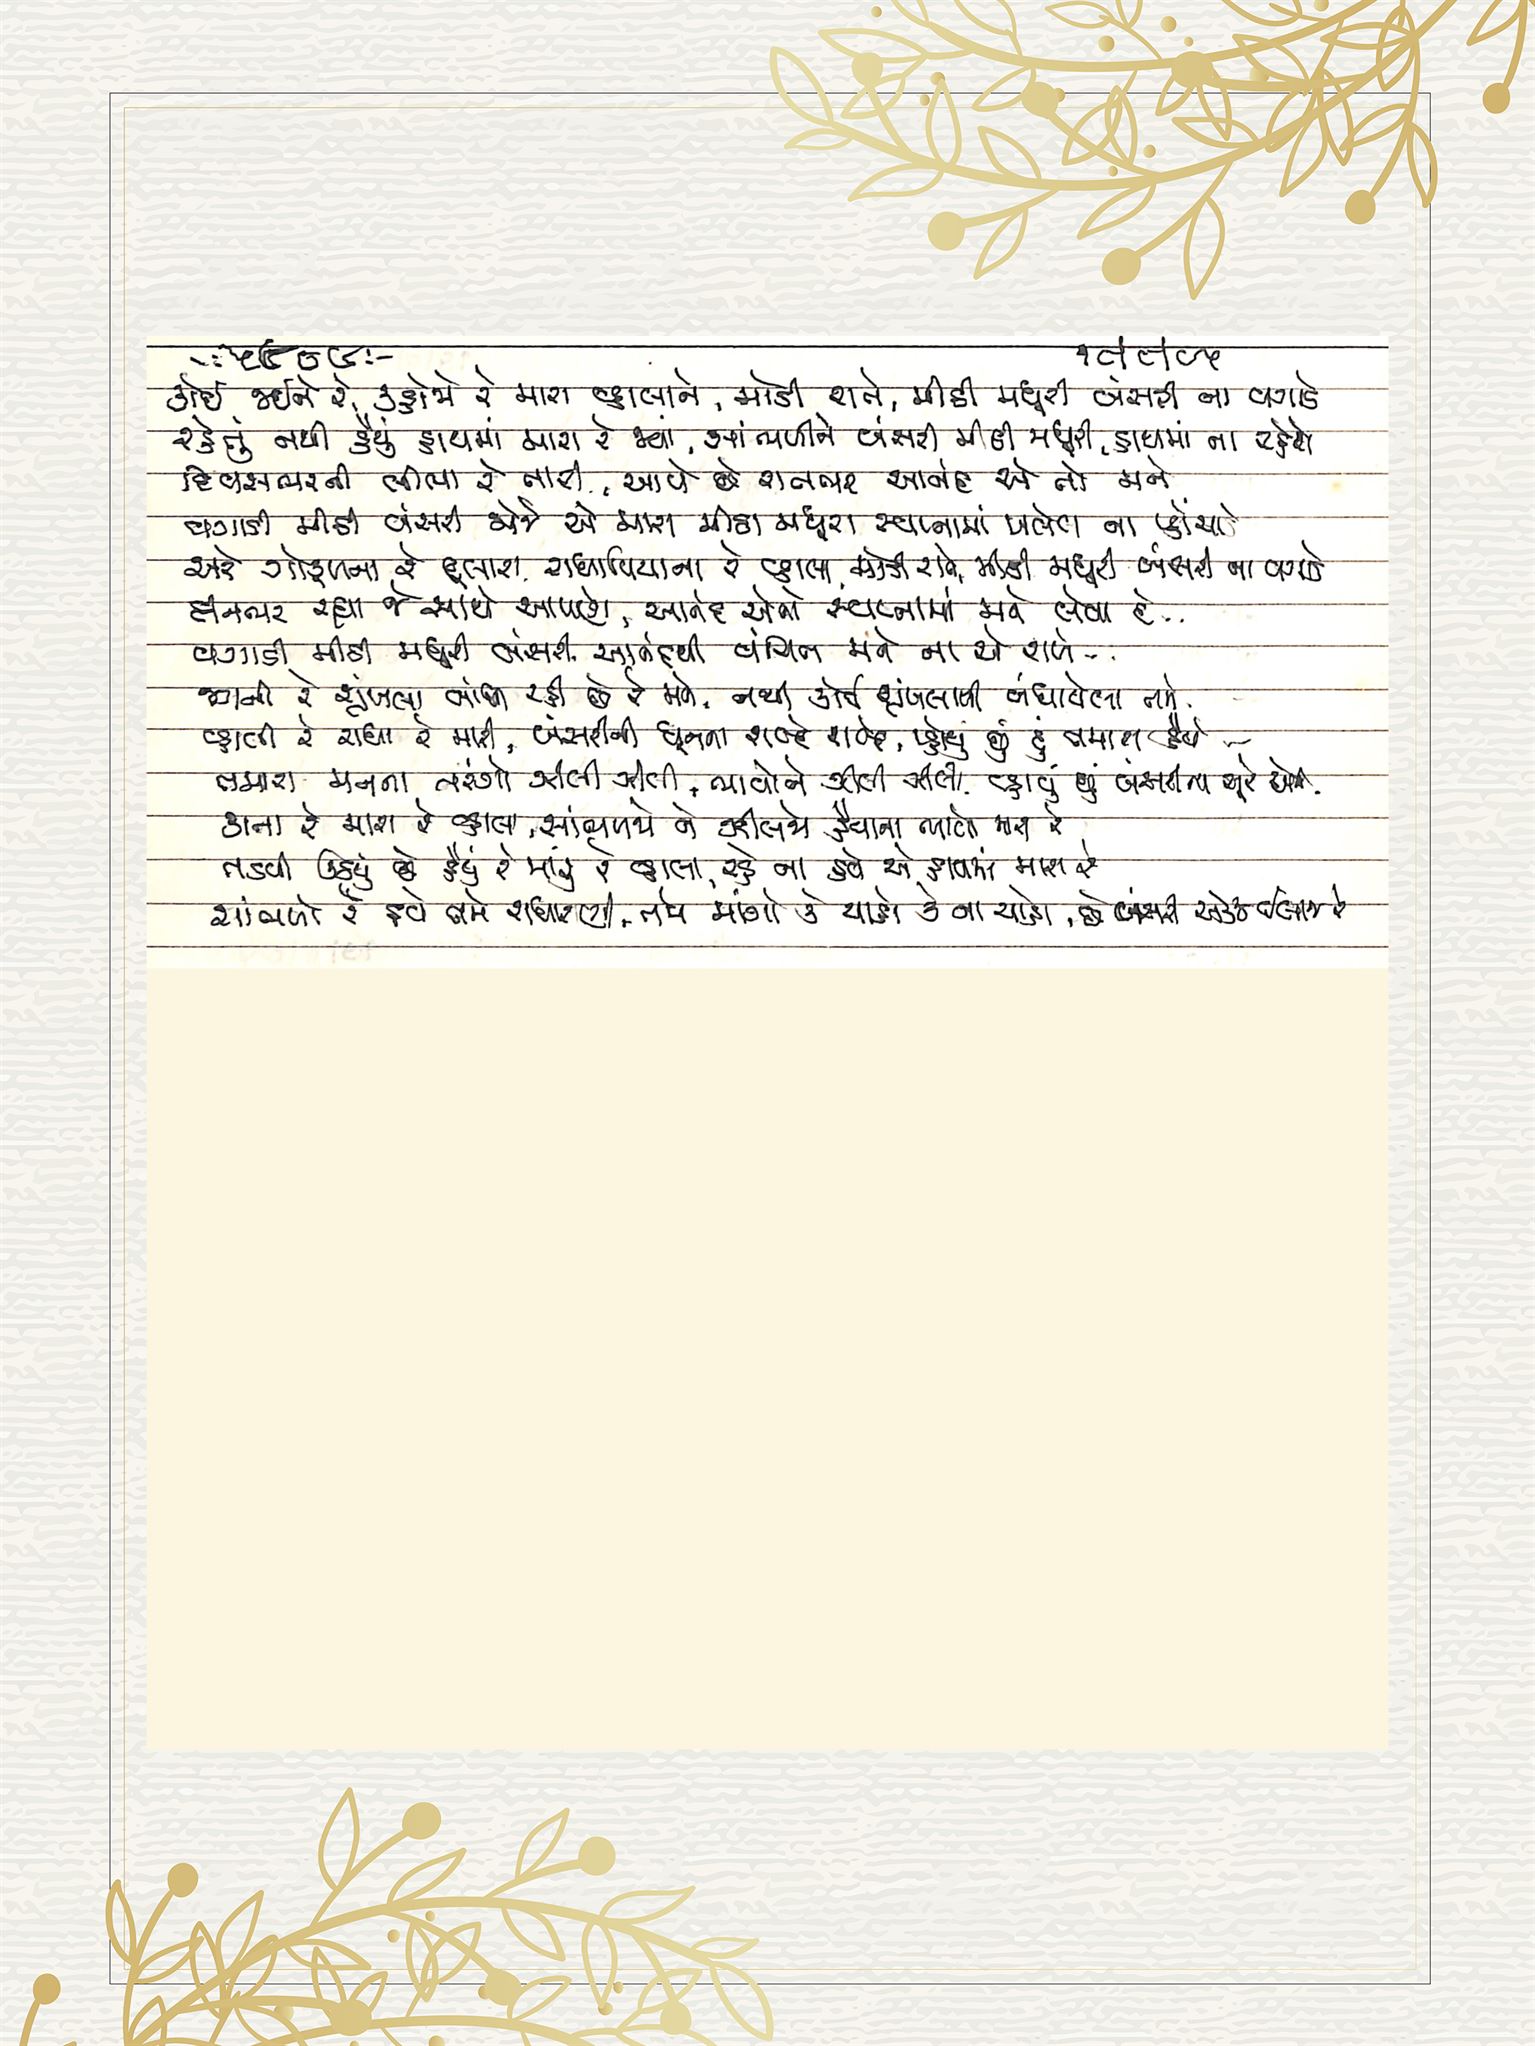 કોઈ જઈને રે, કહોને રે મારા વ્હાલાને, મોડી રાતે, મીઠી મધૂરી બંસરી ના વગાડે
રહેતું નથી હૈયું હાથમાં મારા રે જ્યાં, સાંભળીને બંસરી મીઠી મધૂરી, હાથમાં ના રહેશે
દિવસભરની લીલા રે તારી, આપે છે રાતભર આનંદ એ તો મને
વગાડી મીઠી બંસરી એજે એ મારા મીઠા મધૂરા સ્વપ્નામાં ખલેલ ના પ્હોંચાડે
અરે ગોકૂળના રે દૂલારા, રાધાપ્રિયાના રે વ્હાલા, મોડી રાતે, મીઠી મધૂરી બંસરી ના વગાડે
દિનભર રહ્યા જે સાથે આપણે, આનંદ એનો સ્વપ્નામાં મને લેવા દે..
વગાડી મીઠી મધૂરી બંસરી, આનંદથી વંચિત મને ના એ રાખે...
રે શૃંખલા બાંધી રહી છે રે મને, નથી કોઈ શૃંખલાથી બંધાયેલા તમે
વ્હાલી રે રાધા રે મારી, બંસરીની ધૂનના શબ્દે શબ્દે, પ્હોંચું છું હું તમારા હૈયે ...
તમારા મનના તરંગો ઝીલી ઝીલી, ભાવોને ઝીલી ઝીલી, વ્હાવું છું બંસરીના સૂરે
કાના રે મારા રે વ્હાલા, સાંભળજે ને ઝીલજે હૈયાના ભાવો મારા રે
તડપી ઊઠયું છે હૈયું રે મારું રે વ્હાલા, રહે ના હવે એ હાથમાં મારા રે
સાંભળો રે હવે તમે રાધારાણી, માંગો કે ચાહો કે ના ચાહો, છે બંસરી એકજ ઈલાજ રે